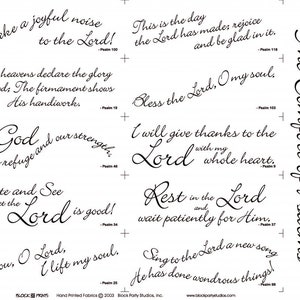 ke a joyful noise
to the Lord!
- Psalm 100
This is the day
the Lord has made; rejoice
and be glad in it.
- Psalm 118
heavens declare the glory
God; The firmament shows
His handiwork.
- Psalm 19
Bless the Lord, O my soul,
- Psalm 103
God
refuge and our strength,
- Psalm 46
I will give thanks to the
Lord with my
whole heart.
- Psalm 9
te and See
t the Lord is good!
- Psalm 34
Rest in the Lord
and
wait patiently for Him.
- Psalm 37
ou, O Lord,
I lift my soul.
- Psalm 25
Sing to the Lord a new song
He has done wondrous things!
- Psalm 98
BLOCK PARTY Hand Printed Fabrics © 2003 Block Party Studios, Inc. www.blockpartystudios.com